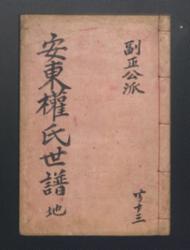 副正公派
安東權氏世譜
地